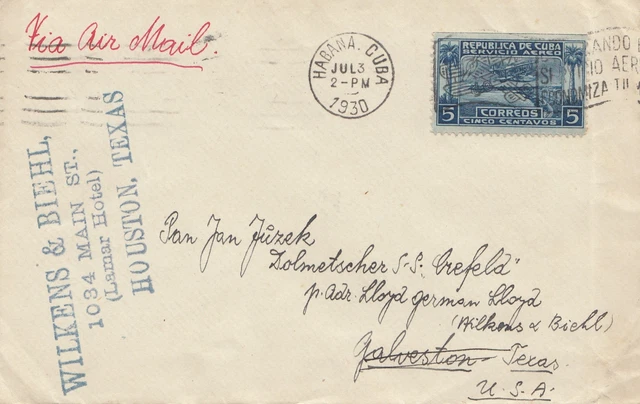 Via Air Mail.
HABANA. CUBA
JUL 3
2-PM
1930
REPUBLICA DE CUBA
SERVICIO AEREO
CORREOS
5 CINCO CENTAVOS 5
SI
WILKENS & BIEHL,
1034 MAIN ST.,
(Lamar Hotel)
HOUSTON, TEXAS
Pan Jan Jůzek
Dolmetscher S.S. „Crefeld"
p. Adr. Lloyd german Lloyd
(Wilkens & Biehl)
Galveston Texas
U.S.A.